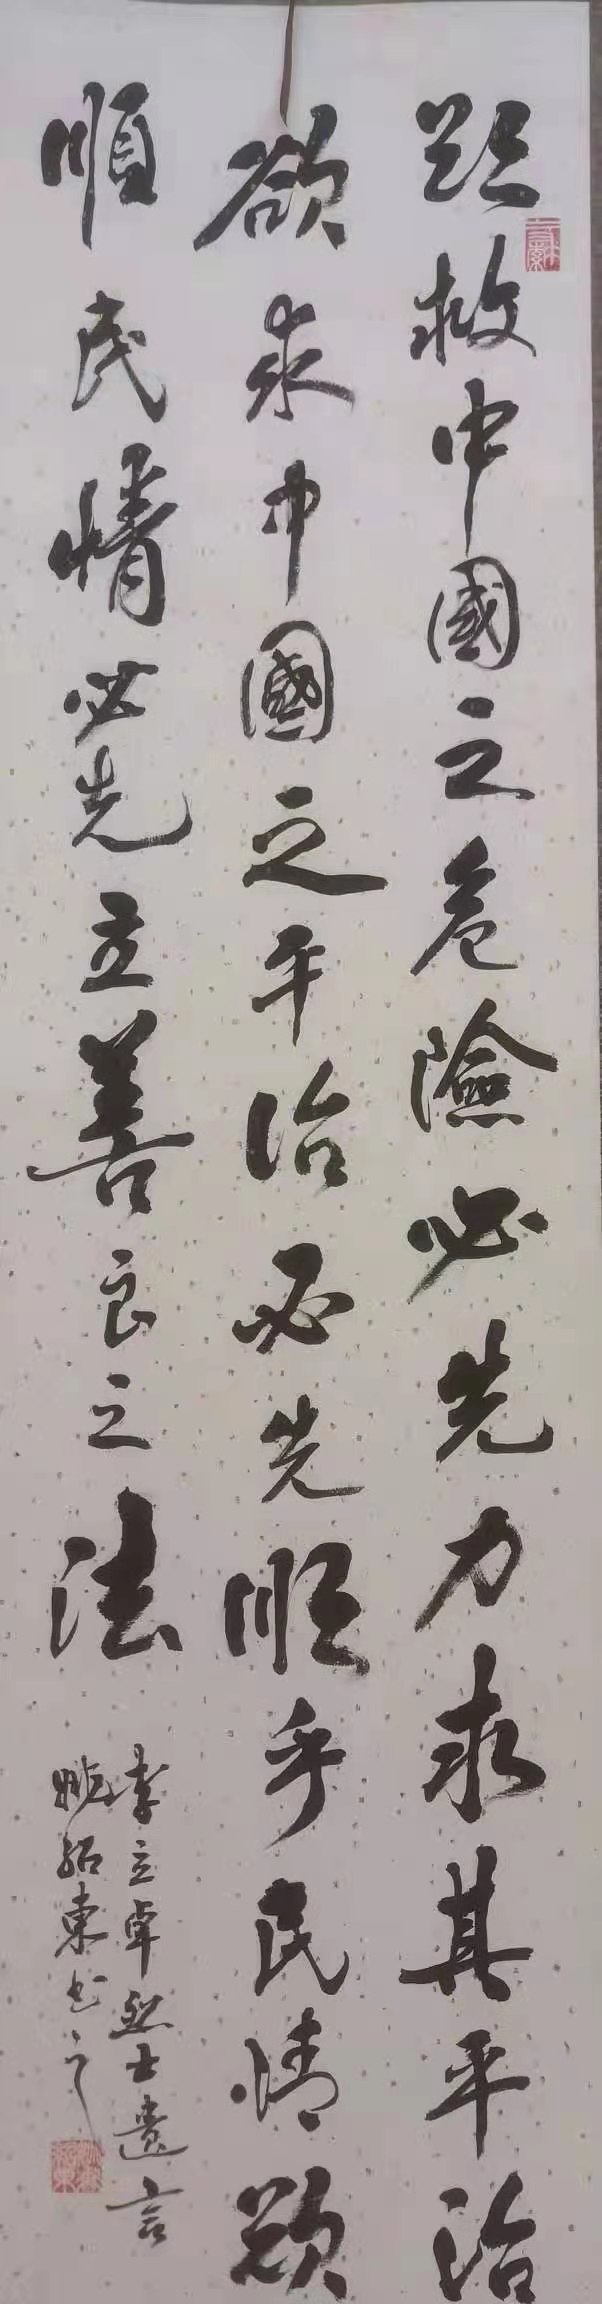 欲救中國之危險必先力求其平治
欲求中國之平治必先順乎民情欲
順民情必先立善良之法
李立卓烈士遺言
姚紹東书之